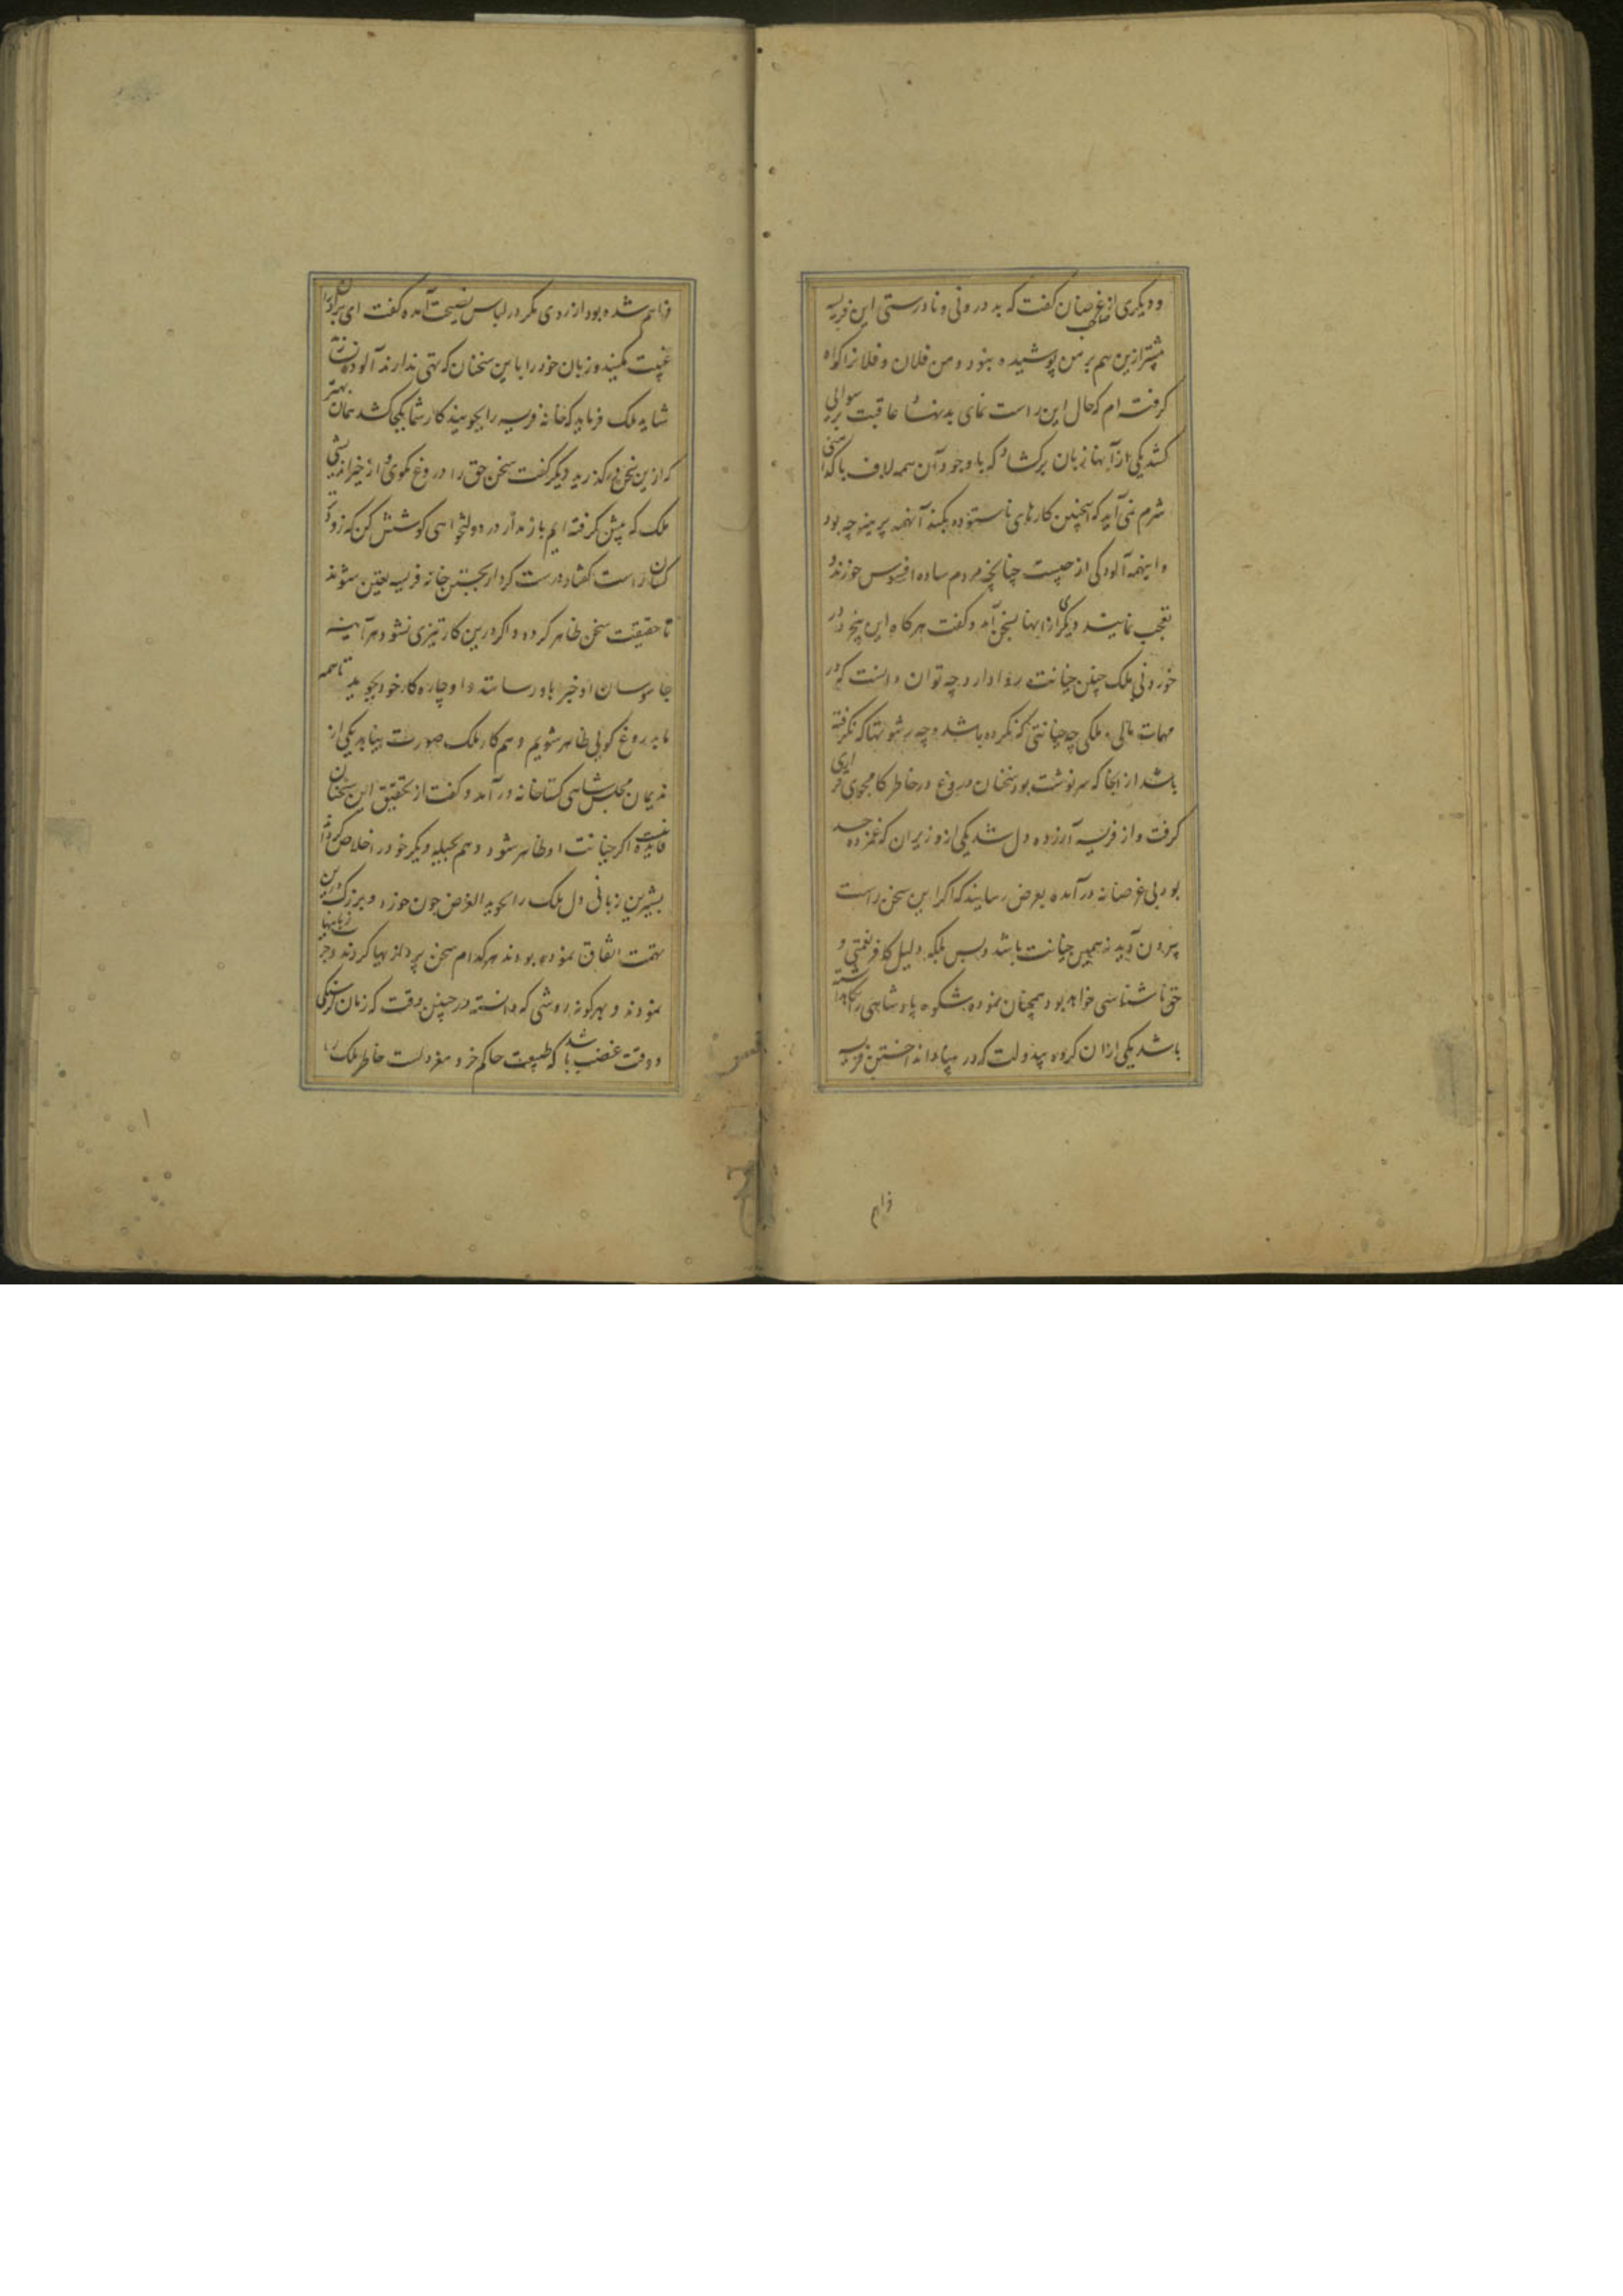 و دیگری از غرضان گفت که بد درونی و نادرستی این فریسه
پیشتر ازین هم بر من پوشیده بنود و من فلان و فلانرا گواه
گرفته ام که حال این راست نمای بدنهاد عاقبت برسوایی
کشد یکی از آنها زبان برکشاد که با وجود آن همه لاف پاکدامنی
شرم نمی آید که اینچنین کارهای ناستوده بکند آنهمه پرهیز چه بود
و اینهمه آلودگی از چیست چنانچه مردم ساده افسوس خورند و
تعجب نمایند دیگری ازانها بسخن آمد و گفت هرگاه این پنج در
خوردنی ملک چنین خیانت روا دارد چه توان دانست که در
مهمات مالی و ملکی چه خیانتی که نکرده باشد و چه رشوتها که نگرفته
باشد از انجا که سرنوشت بود سخنان دروغ در خاطر کامجوی
گرفت و از فریسه آرزده دل شد یکی از وزیران که غمزده حسد
بود بی غرضانه درآمده بعرض رسانید که اگر این سخن راست
بیرون آید نه همین خیانت باشد و بس بلکه دلیل کافر نعمتی و
حق ناشناسی خواهد بود همچنان نموده شکوه پادشاهی را نگاهداشته
باشد یکی ازان گروه بیدولت که در بنیاد انداختن فریسه
فراهم
فراهم شده بود از روی مکر در لباس نصیحت آمده گفت ای برادران
غیبت مکنید و زبان خود را باین سخنان که تهی ندارند آلوده
شاید ملک فرماید که خانه فریسه را بجویند کار شما بکجا کشد همان بهتر
که ازین سخن درگذرید دیگر گفت سخن حق را دروغ مگوی و از خیراندیشی
ملک که پیش گرفته ایم باز مدار در دولتخواهی کوشش کن که زود
کسان راست گفتار درست کردار بجستن خانه فریسه تعین شوند
تا حقیقت سخن ظاهر کرده و اگر درین کار تیزی نشود هر آینه
جاسوسان او خبر باو رسانند و او چاره کار خود بجوید تا همه
ما بدروغ گویی ظاهر شویم و هم کار ملک صورت نیابد یکی از
ندیمان مجلس شاهی گستاخانه درآمد و گفت از تحقیق این سخنان
فایده نیست اگر خیانت او ظاهر شود و هم بحیله دیگر خود را خلاص
بشیرین زبانی دل ملک را بجوید الغرض چون خورد و بزرگ درین
تهمت اتفاق نموده بودند هر کدام سخن پرداز بیها کردند و چرب زبانیها
نمودند و بهر گونه روشی که دانسته در چنین وقت که زمان گرسنگی
و وقت غضب باشد که طبیعت حاکم خرد معزولست خاطر ملک را